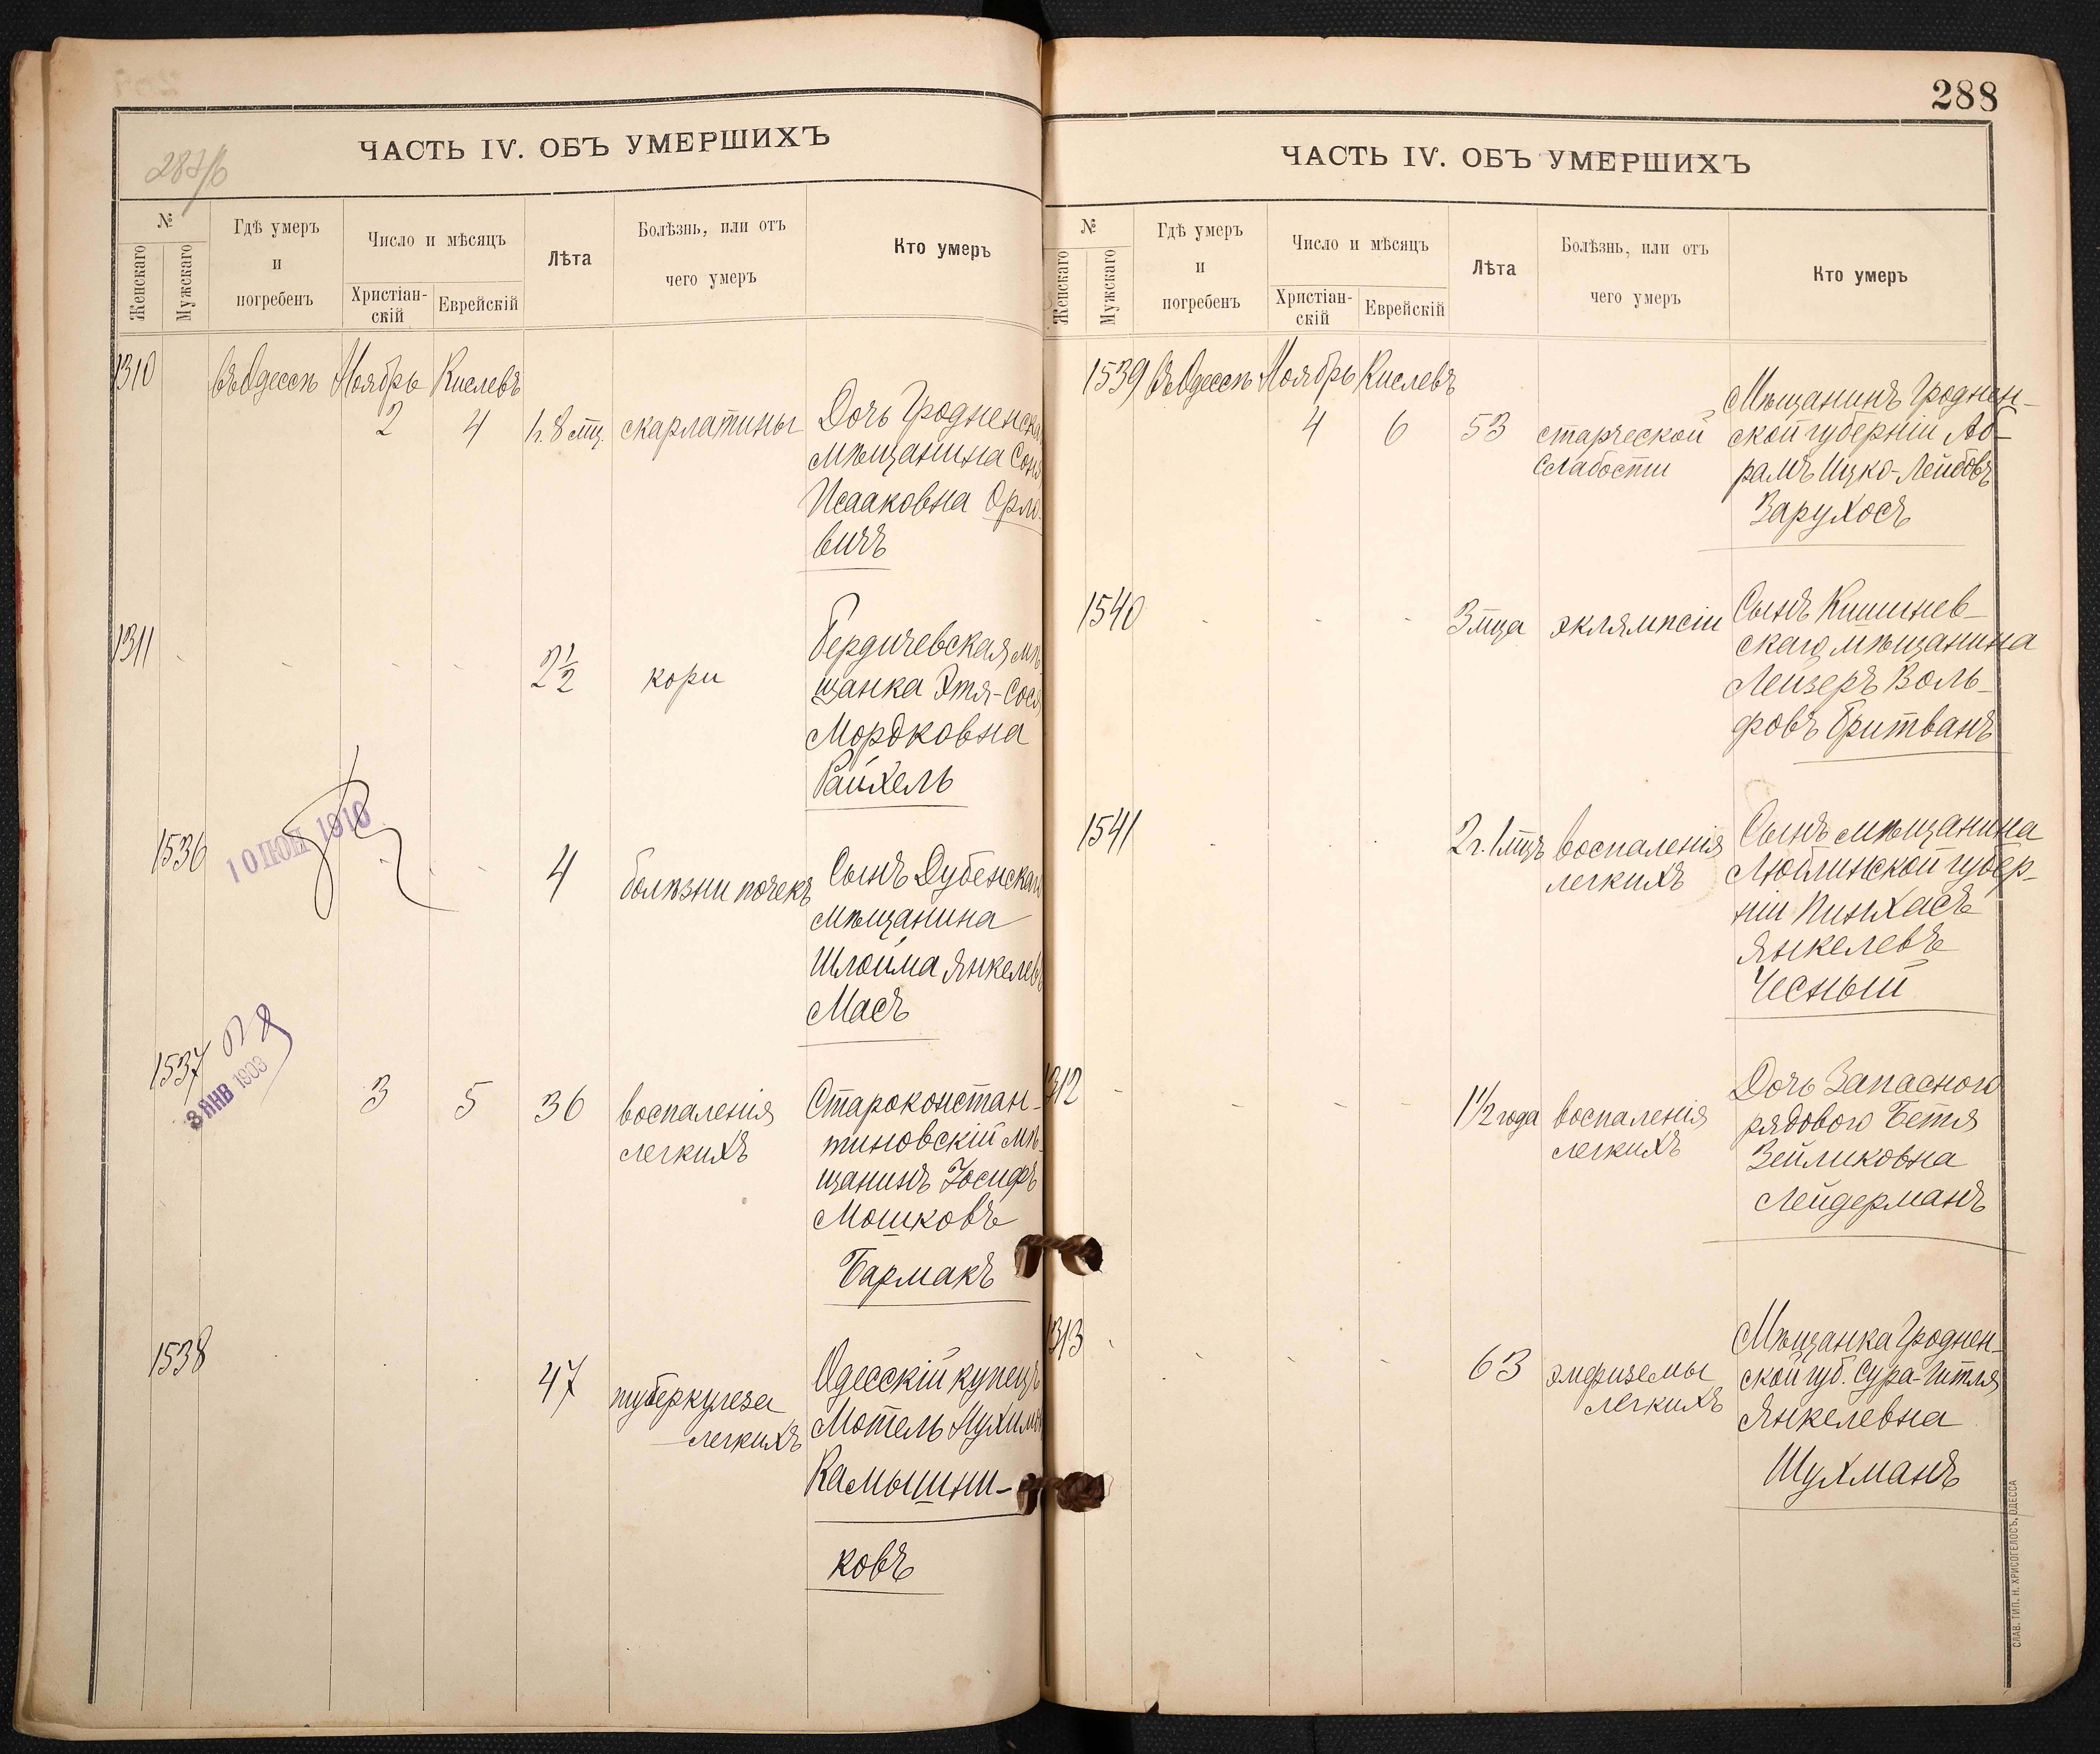 ЧАСТЬ IV. ОБЪ УМЕРШИХЪ
№
Женскаго
Мужскаго
Гдѣ умеръ
и
погребенъ
Число и мѣсяцъ
Христіан-
скій
Еврейскій
Лѣта
Болѣзнь, или отъ
чего умеръ
Кто умеръ
1310
въ Одессѣ
Ноябрь
2
Кислевъ
4
1г. 8 мц.
скарлатины
Дочь Гродненска
мѣщанина Соня
Исааковна Орло-
вичъ
1311
2½
кори
Бердичевская мѣ
щанка Этя-Сося
Мордковна
Райхель
1536
10 ІЮН 1910
4
болѣзни почекъ
Сынъ Дубенскаго
мѣщанина
Шлойма Янкелевъ
Масъ
1537
8 ЯНВ 1903
3
5
36
воспаленія
легкихъ
Староконстан-
тиновскій мѣ-
щанинъ Іосифъ
Мошковъ
Бармакъ
1538
47
туберкулеза
легкихъ
Одесскій купецъ
Мотель Нухимъ
Камышни-
ковъ
288
ЧАСТЬ IV. ОБЪ УМЕРШИХЪ
№
Женскаго
Мужскаго
Гдѣ умеръ
и
погребенъ
Число и мѣсяцъ
Христіан-
скій
Еврейскій
Лѣта
Болѣзнь, или отъ
чего умеръ
Кто умеръ
1539
въ Одессѣ
Ноябрь
4
Кислевъ
6
53
старческой
слабости
Мѣщанинъ Гроднен-
ской губерніи Аб-
рамъ Ицко-Лейбовъ
Зарухосъ
1540
3 мца
эклямпсіи
Сынъ Кишинев-
скаго мѣщанина
Лейзеръ Воль-
фовъ Бритванъ
1541
2г. 1 мцъ
воспаленія
легкихъ
Сынъ мѣщанина
Люблинской губер-
ніи Пинхасъ
Янкелевъ
Чесный
1312
1 1/2 года
воспаленія
легкихъ
Дочь Запасного
рядового Бетя
Зейликовна
Лейдерманъ
1313
63
эмфиземы
легкихъ
Мѣщанка Гроднен-
ской губ. Сура-Гитля
Янкелевна
Шухманъ
СЛАВ. ТИП. Н. ХРИСОГЕЛОСЪ, ОДЕССА